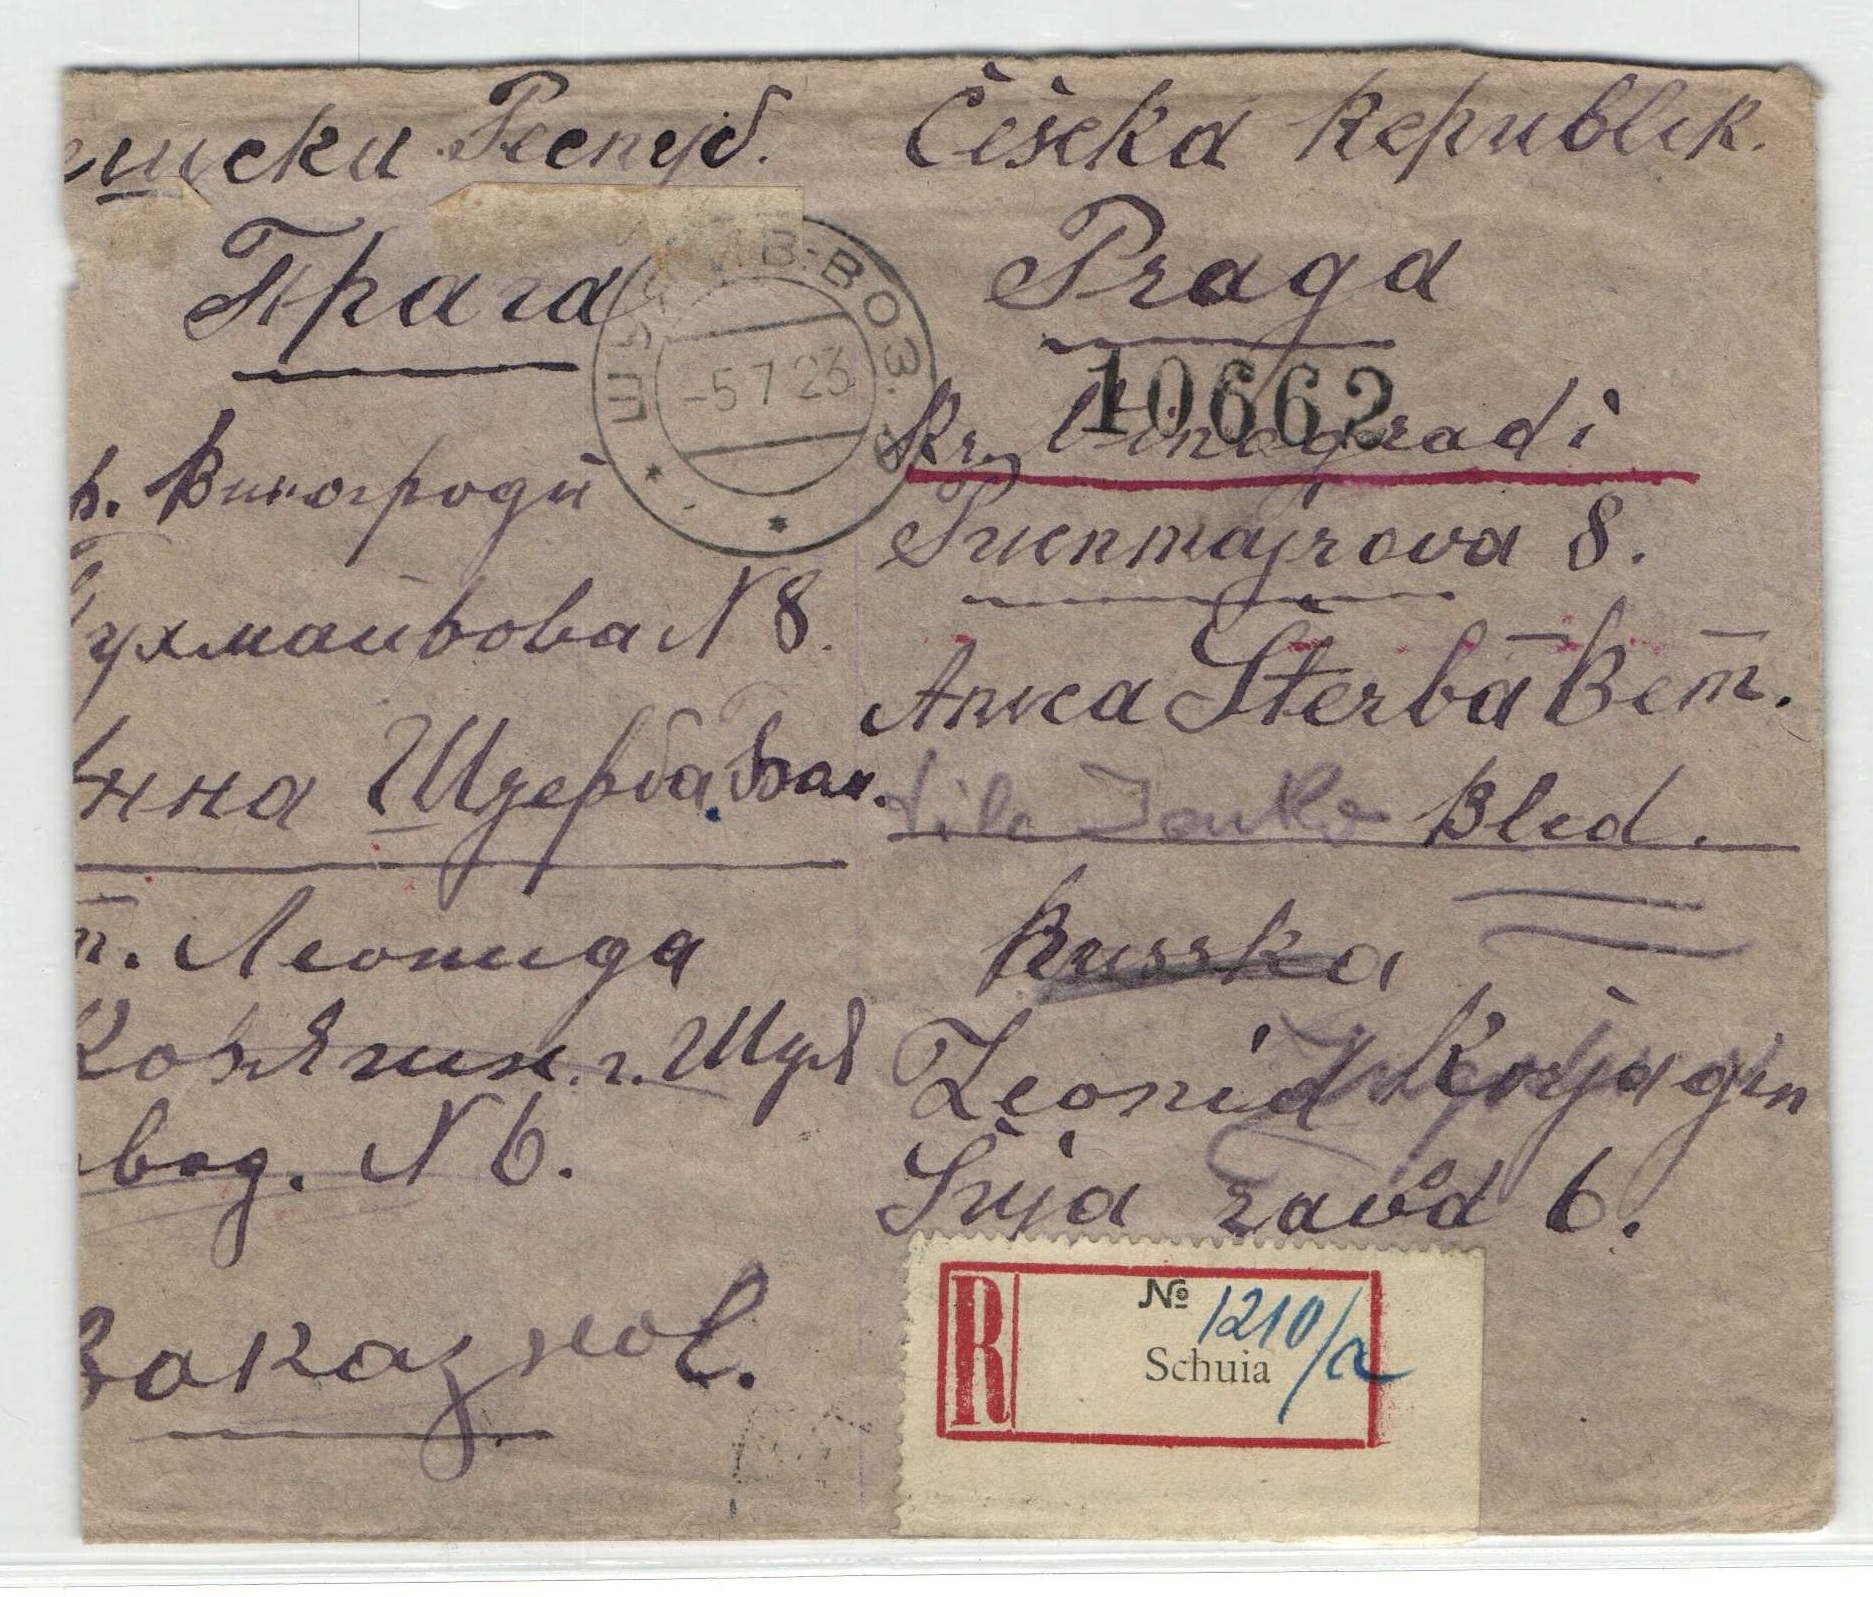 ешска Респуб.
Прага
р. Винограды
Пухмайрова N 8.
Анна Щерба
т. Леонида
Корягин. г. Шуя
вод. N 6.
Заказное.
Češcka Republik.
Praga
10662
Kr. Vinogradi
Pucnmajrova 8.
Anna Šterba
Vila Bled.
Russka
Leonid Korjagin
Šuja zavod 6.
-5 7 23
R
№ 1210/a
Schuia